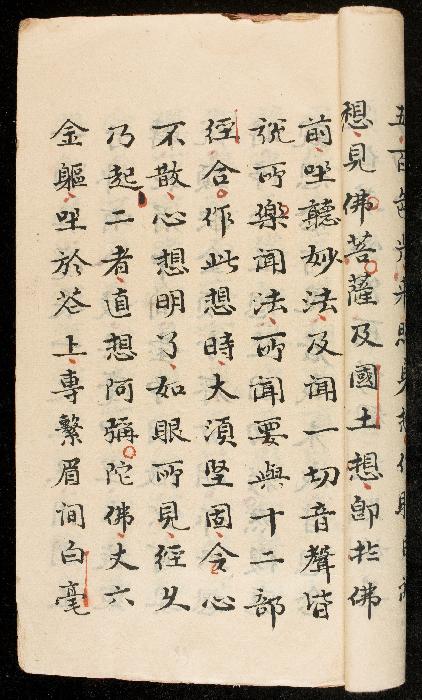 五百色光来照見想作眼
想見佛菩薩及國土想即於佛
前坐聽妙法及聞一切音聲皆
說所樂聞法所聞要與十二部
經合作此想時大須堅固令心
不散心想明了如眼所見經久
乃起二者直想阿彌陀佛丈六
金軀坐於花上專繫眉間白毫